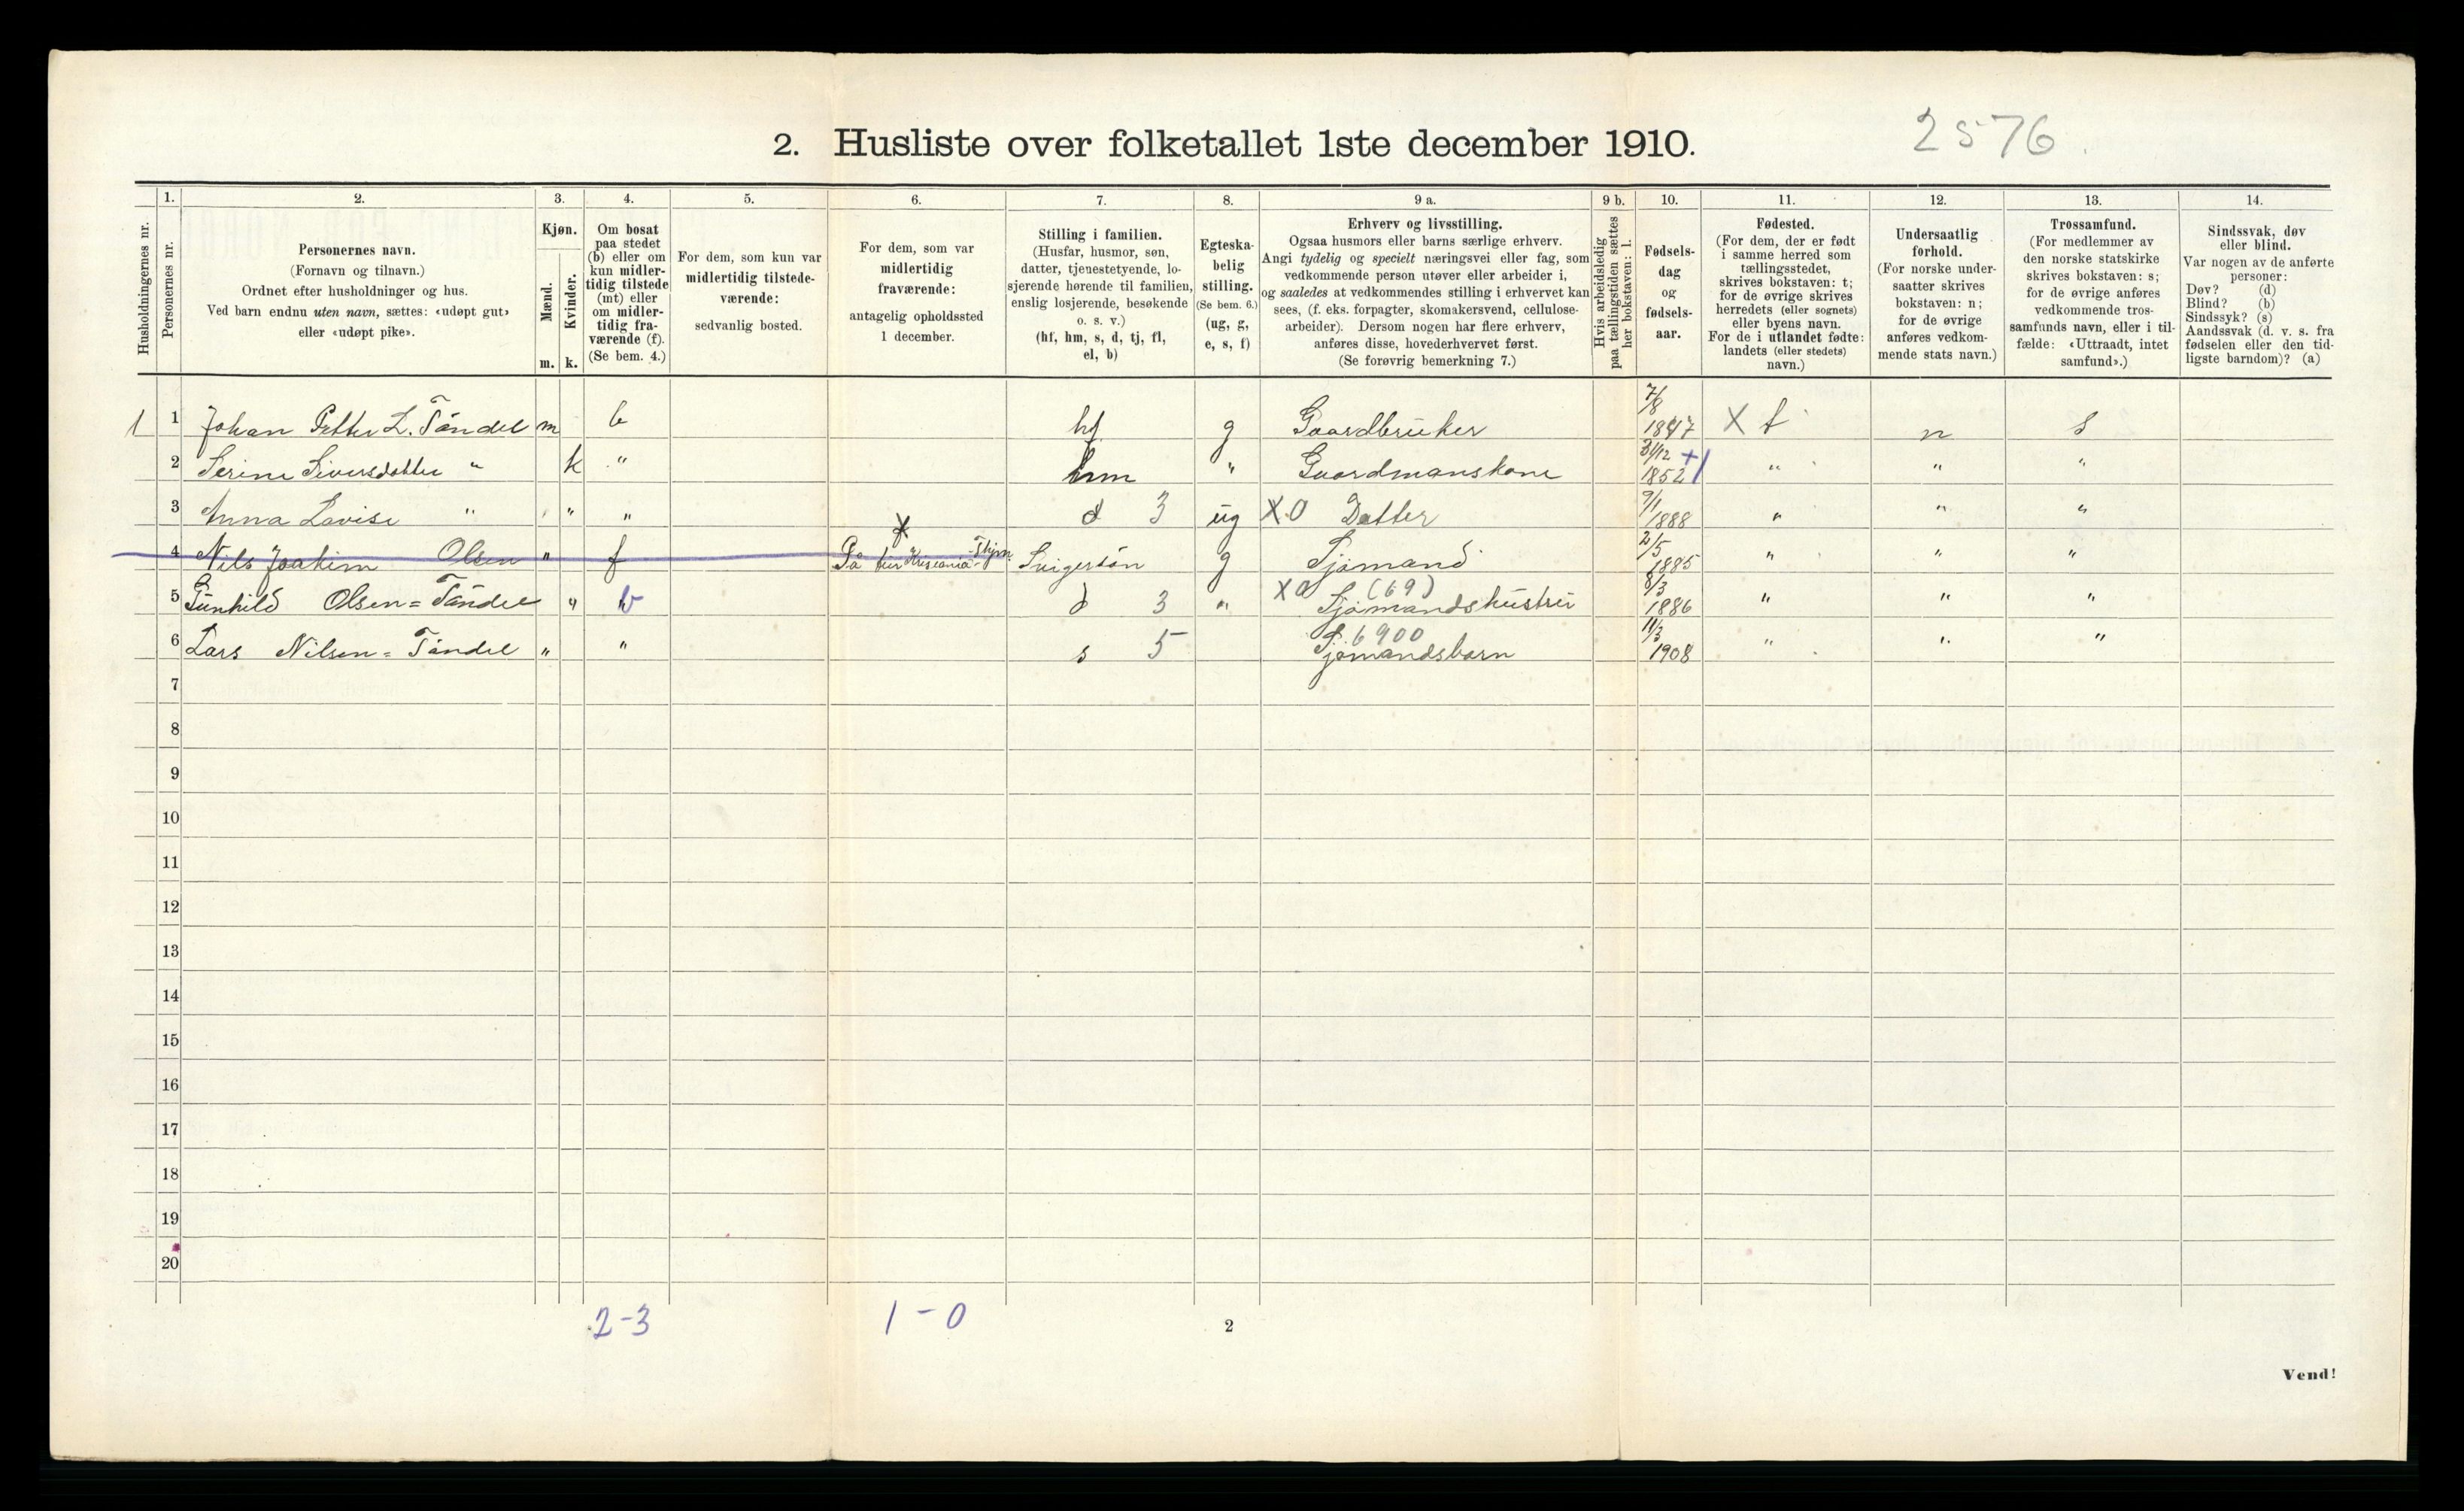 2576.
2. Husliste over folketallet 1ste december 1910.
Husholdningernes nr.
1.
Personernes nr.
2.
Personernes navn.
(Fornavn og tilnavn.)
Ordnet efter husholdninger og hus.
Ved barn endnu uten navn, sættes: «udøpt gut»
eller «udøpt pike».
3.
Kjøn.
Mænd.
Kvinder.
m. k.
4.
Om bosat
paa stedet
(b) eller om
kun midler-
tidig tilstede
(mt) eller
om midler-
tidig fra-
værende (f).
(Se bem. 4.)
5.
For dem, som kun var
midlertidig tilstede-
værende:
sedvanlig bosted.
6.
For dem, som var
midlertidig
fraværende:
antagelig opholdssted
1 december.
7.
Stilling i familien.
(Husfar, husmor, søn,
datter, tjenestetyende, lo-
sjerende hørende til familien,
enslig losjerende, besøkende
o. s. v.)
(hf, hm, s, d, tj, fl,
el, b)
8.
Egteska-
belig
stilling.
(Se bem. 6.)
(ug, g,
e, s, f)
9 a.
Erhverv og livsstilling.
Ogsaa husmors eller barns særlige erhverv.
Angi tydelig og specielt næringsvei eller fag, som
vedkommende person utøver eller arbeider i,
og saaledes at vedkommendes stilling i erhvervet kan
sees, (f. eks. forpagter, skomakersvend, cellulose-
arbeider). Dersom nogen har flere erhverv,
anføres disse, hovederhvervet først.
(Se forøvrig bemerkning 7.)
9 b.
Hvis arbeidsledig
paa tællingstiden sættes
her bokstaven: l.
10.
Fødsels-
dag
og
fødsels-
aar.
11.
Fødested.
(For dem, der er født
i samme herred som
tællingsstedet,
skrives bokstaven: t;
for de øvrige skrives
herredets (eller sognets)
eller byens navn.
For de i utlandet fødte:
landets (eller stedets)
navn.)
12.
Undersaatlig
forhold.
(For norske under-
saatter skrives
bokstaven: n;
for de øvrige
anføres vedkom-
mende stats navn.)
13.
Trossamfund.
(For medlemmer av
den norske statskirke
skrives bokstaven: s;
for de øvrige anføres
vedkommende tros-
samfunds navn, eller i til-
fælde: «Uttraadt, intet
samfund».)
14.
Sindssvak, døv
eller blind.
Var nogen av de anførte
personer:
Døv? (d)
Blind? (b)
Sindssyk? (s)
Aandssvak (d. v. s. fra
fødselen eller den tid-
ligste barndom)? (a)
1 1 Johan Petter L. Tåndel m b hf g Gaardbruker 7/8 1847 X t n s
2 Serine Siversdatter " k " hm " Guardmanskone 31/12 1852 + " " "
3 Anna Lovise " " " d 3 ug X0 Datter 9/1 1888 " " "
4 Nils Joakim Olsen " f X På tur Kristiania- Svigersøn g Sjømand 2/5 1885 " " "
5 Gunhild Olsen = Tåndel " b d 3 " X0 (69) Sjømandshustru 8/3 1886 " " "
6 Lars Nilsen = Tåndel " " s 5 S. 6900 Sjømandsbarn 11/3 1908 " " "
7
8
9
10
11
12
13
14
15
16
17
18
19
20
2-3 1-0
2
Vend!